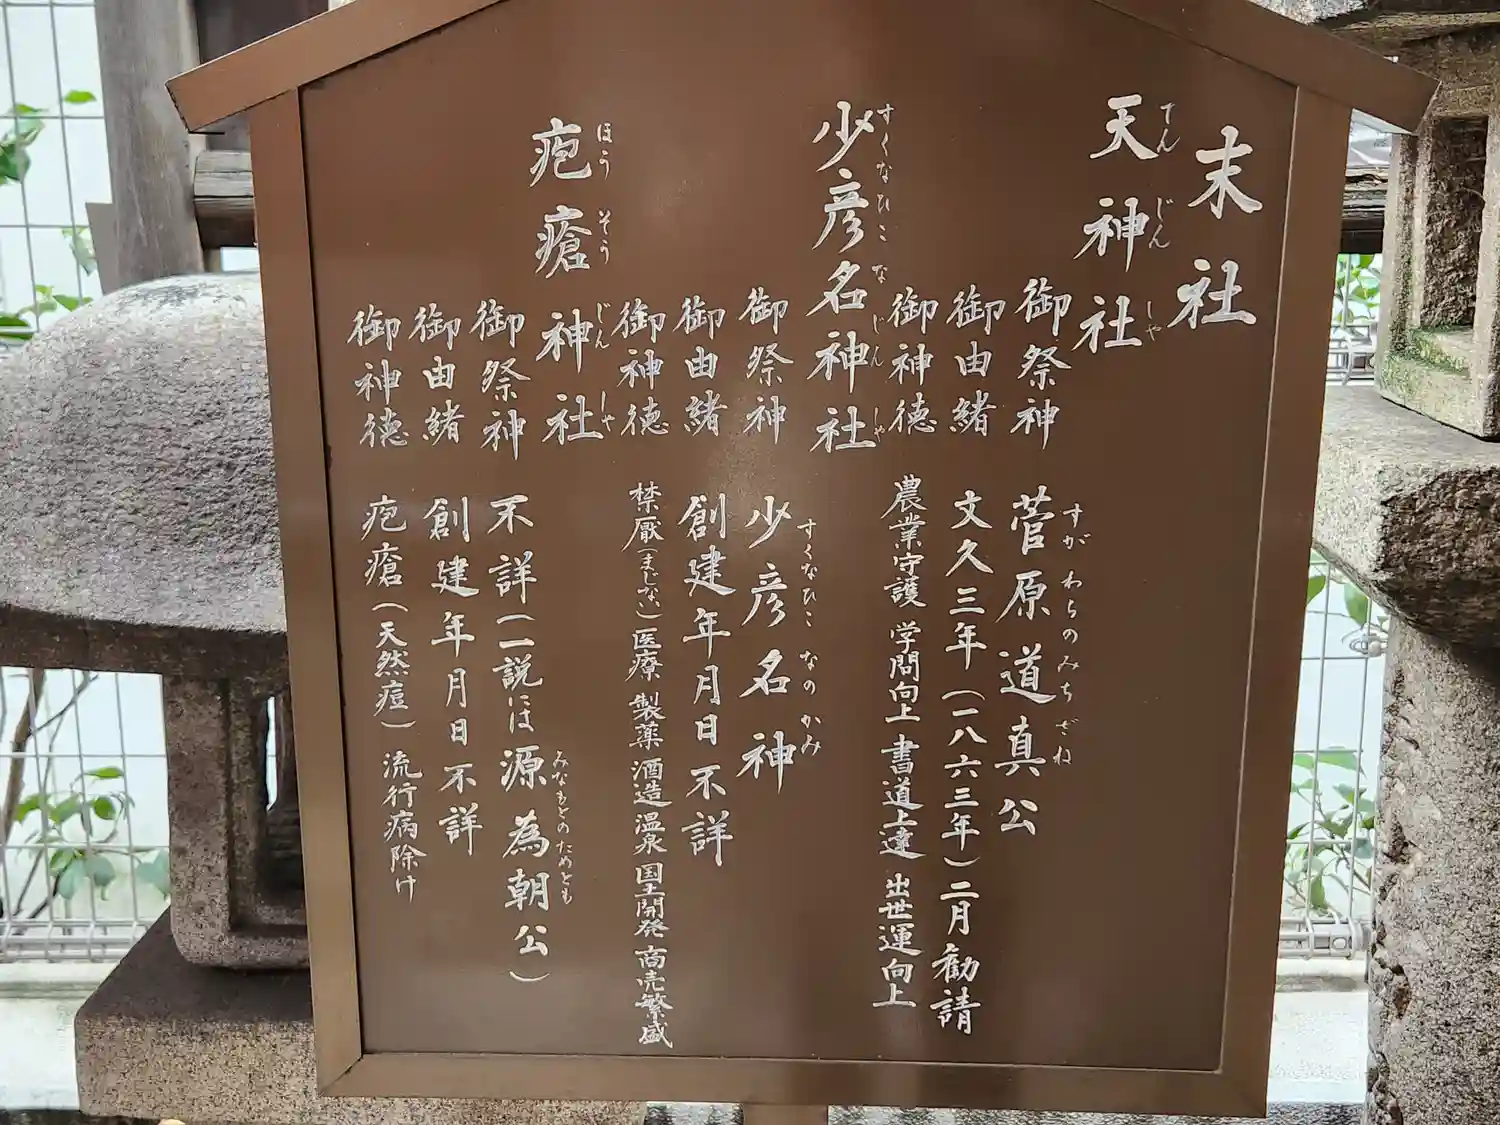 末社
天神社
てんじんしゃ
御祭神 菅原道真公
すがわらのみちざね
御由緒 文久三年(一八六三年)二月勧請
御神徳 農業守護 学問向上 書道上達 出世運向上
少彦名神社
すくなひこなじんしゃ
御祭神 少彦名神
すくなひこなのかみ
御由緒 創建年月日不詳
御神徳 禁厭(まじない)医療 製薬 酒造 温泉 国土開発 商売繁盛
疱瘡神社
ほうそうじんしゃ
御祭神 不詳(一説には源為朝公)
みなもとのためとも
御由緒 創建年月日不詳
御神徳 疱瘡(天然痘)流行病除け